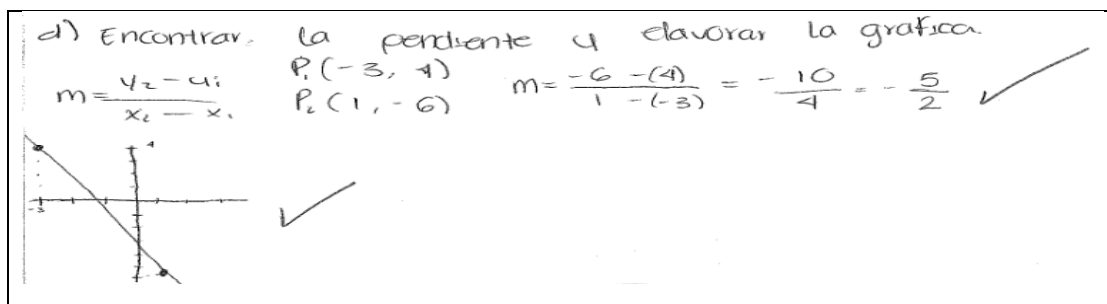 d) Encontrar la pendiente y elavorar la grafica.
m = y₂ - y₁ / x₂ - x₁
P₁ (-3, 4)
P₂ (1, -6)
m = -6 - (4) / 1 - (-3) = - 10 / 4 = - 5 / 2
4
-3